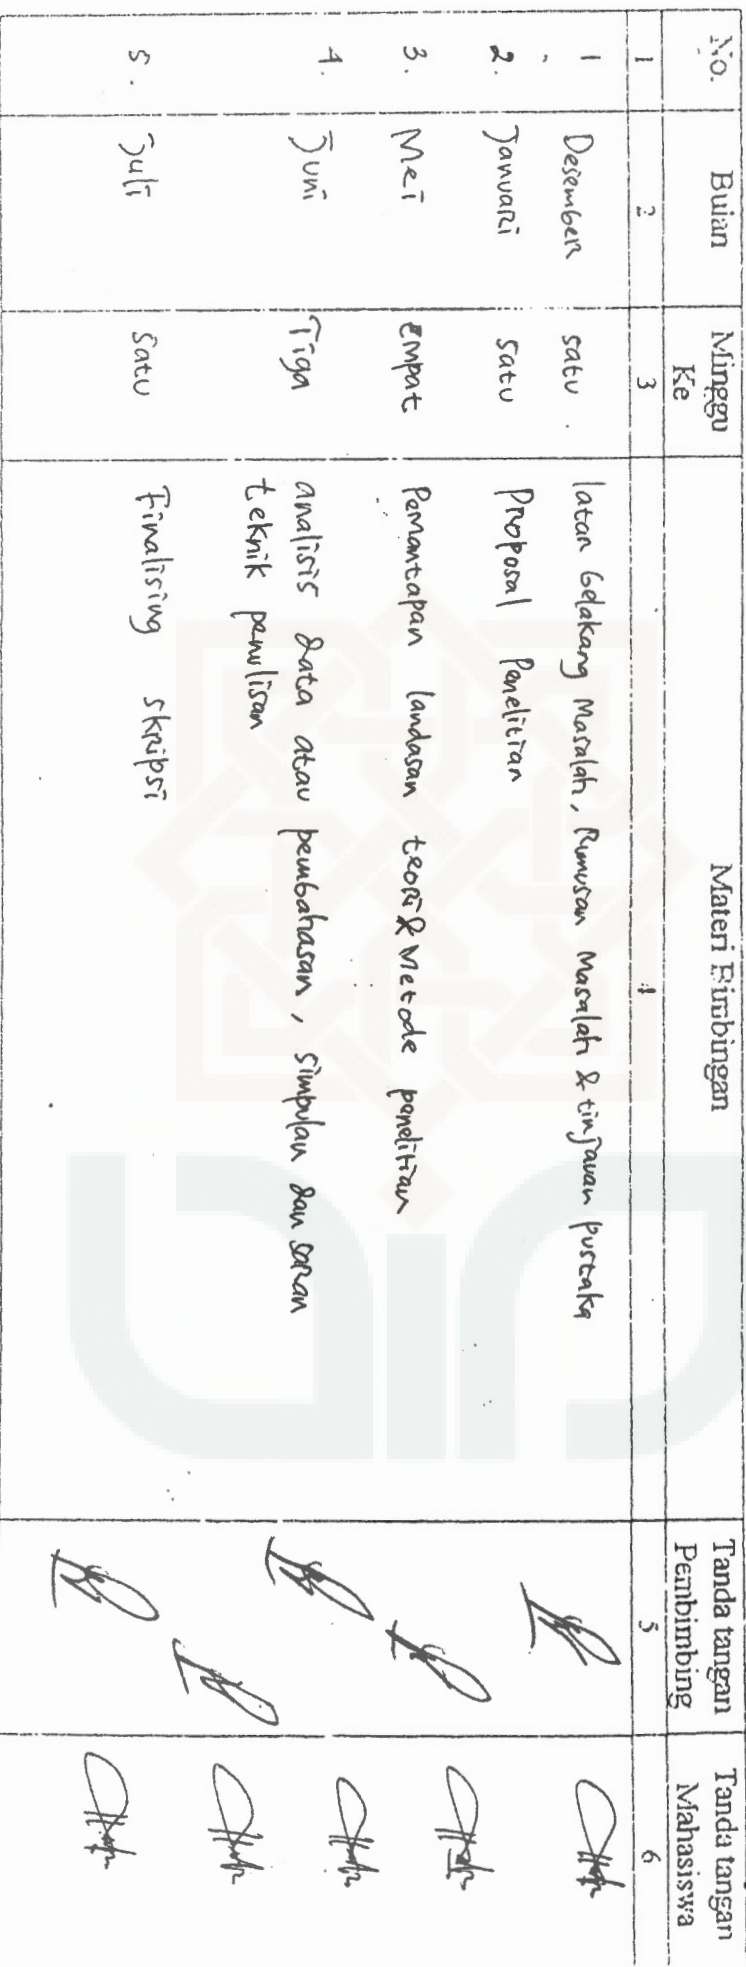 No. Bulan Minggu Ke Materi Bimbingan Tanda tangan Pembimbing Tanda tangan Mahasiswa
1 2 3 4 5 6
1 Desember satu. latar belakang Masalah, Rumusan Masalah & tinjauan pustaka
2. Januari satu Proposal Penelitian
3. Mei empat Pemantapan landasan teori & Metode penelitian
4. Juni Tiga analisis data atau pembahasan, simpulan dan saran
teknik penulisan
5. Juli Satu Finalising skripsi